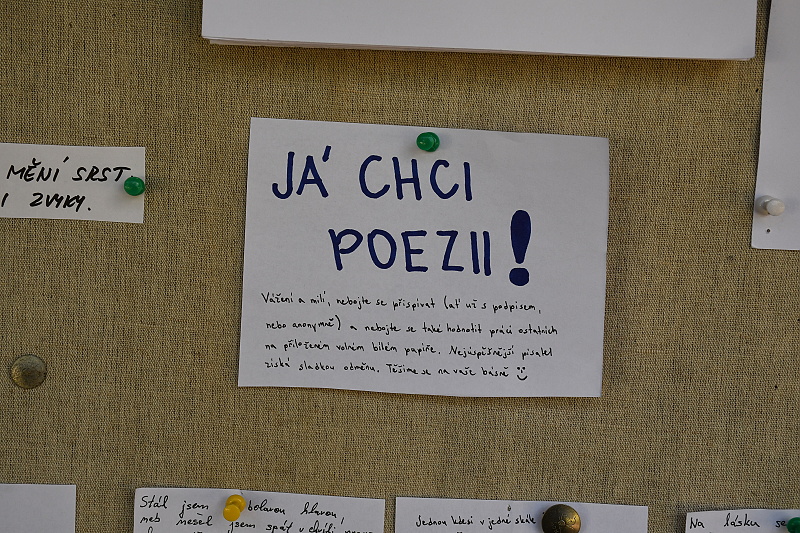 MĚNÍ SRST
I ZVYKY.
JÁ CHCI
POEZII!
Vážení a milí, nebojte se přispívat (ať už s podpisem,
nebo anonymně) a nebojte se také hodnotit práci ostatních
na přiloženém volném bílém papíře. Nejúspěšnější pisatel
získá sladkou odměnu. Těšíme se na vaše básně
Stál jsem bolavou hlavou,
jsem spát v chvíli
Jednou kdesi v jedné skále
Na lásku se